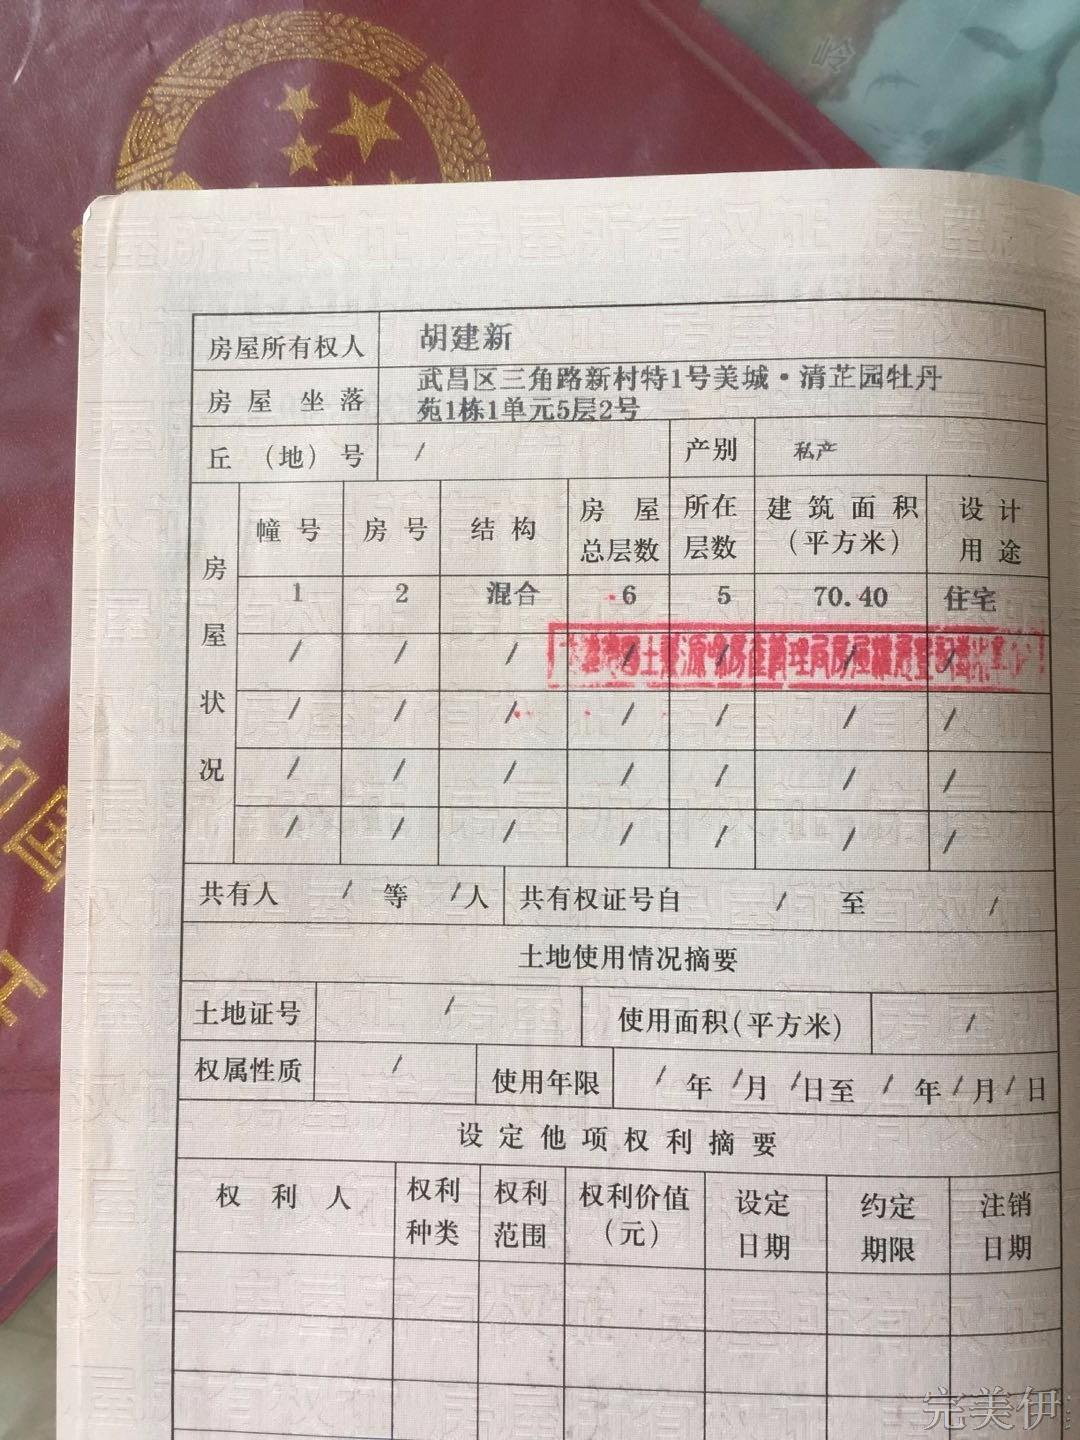 岭
房屋所有权人 胡建新
房屋坐落 武昌区三角路新村特1号美城·清芷园牡丹
苑1栋1单元5层2号
丘(地)号 / 产别 私产
房屋状况
幢号 房号 结构 房屋总层数 所在层数 建筑面积(平方米) 设计用途
1 2 混合 6 5 70.40 住宅
/ / / / / / /
/ / / / / / /
/ / / / / / /
/ / / / / / /
共有人 / 等 / 人 共有权证号自 / 至 /
土地使用情况摘要
土地证号 / 使用面积(平方米) /
权属性质 / 使用年限 / 年 / 月 / 日至 / 年 / 月 / 日
设定他项权利摘要
权利人 权利种类 权利范围 权利价值(元) 设定日期 约定期限 注销日期
完美伊